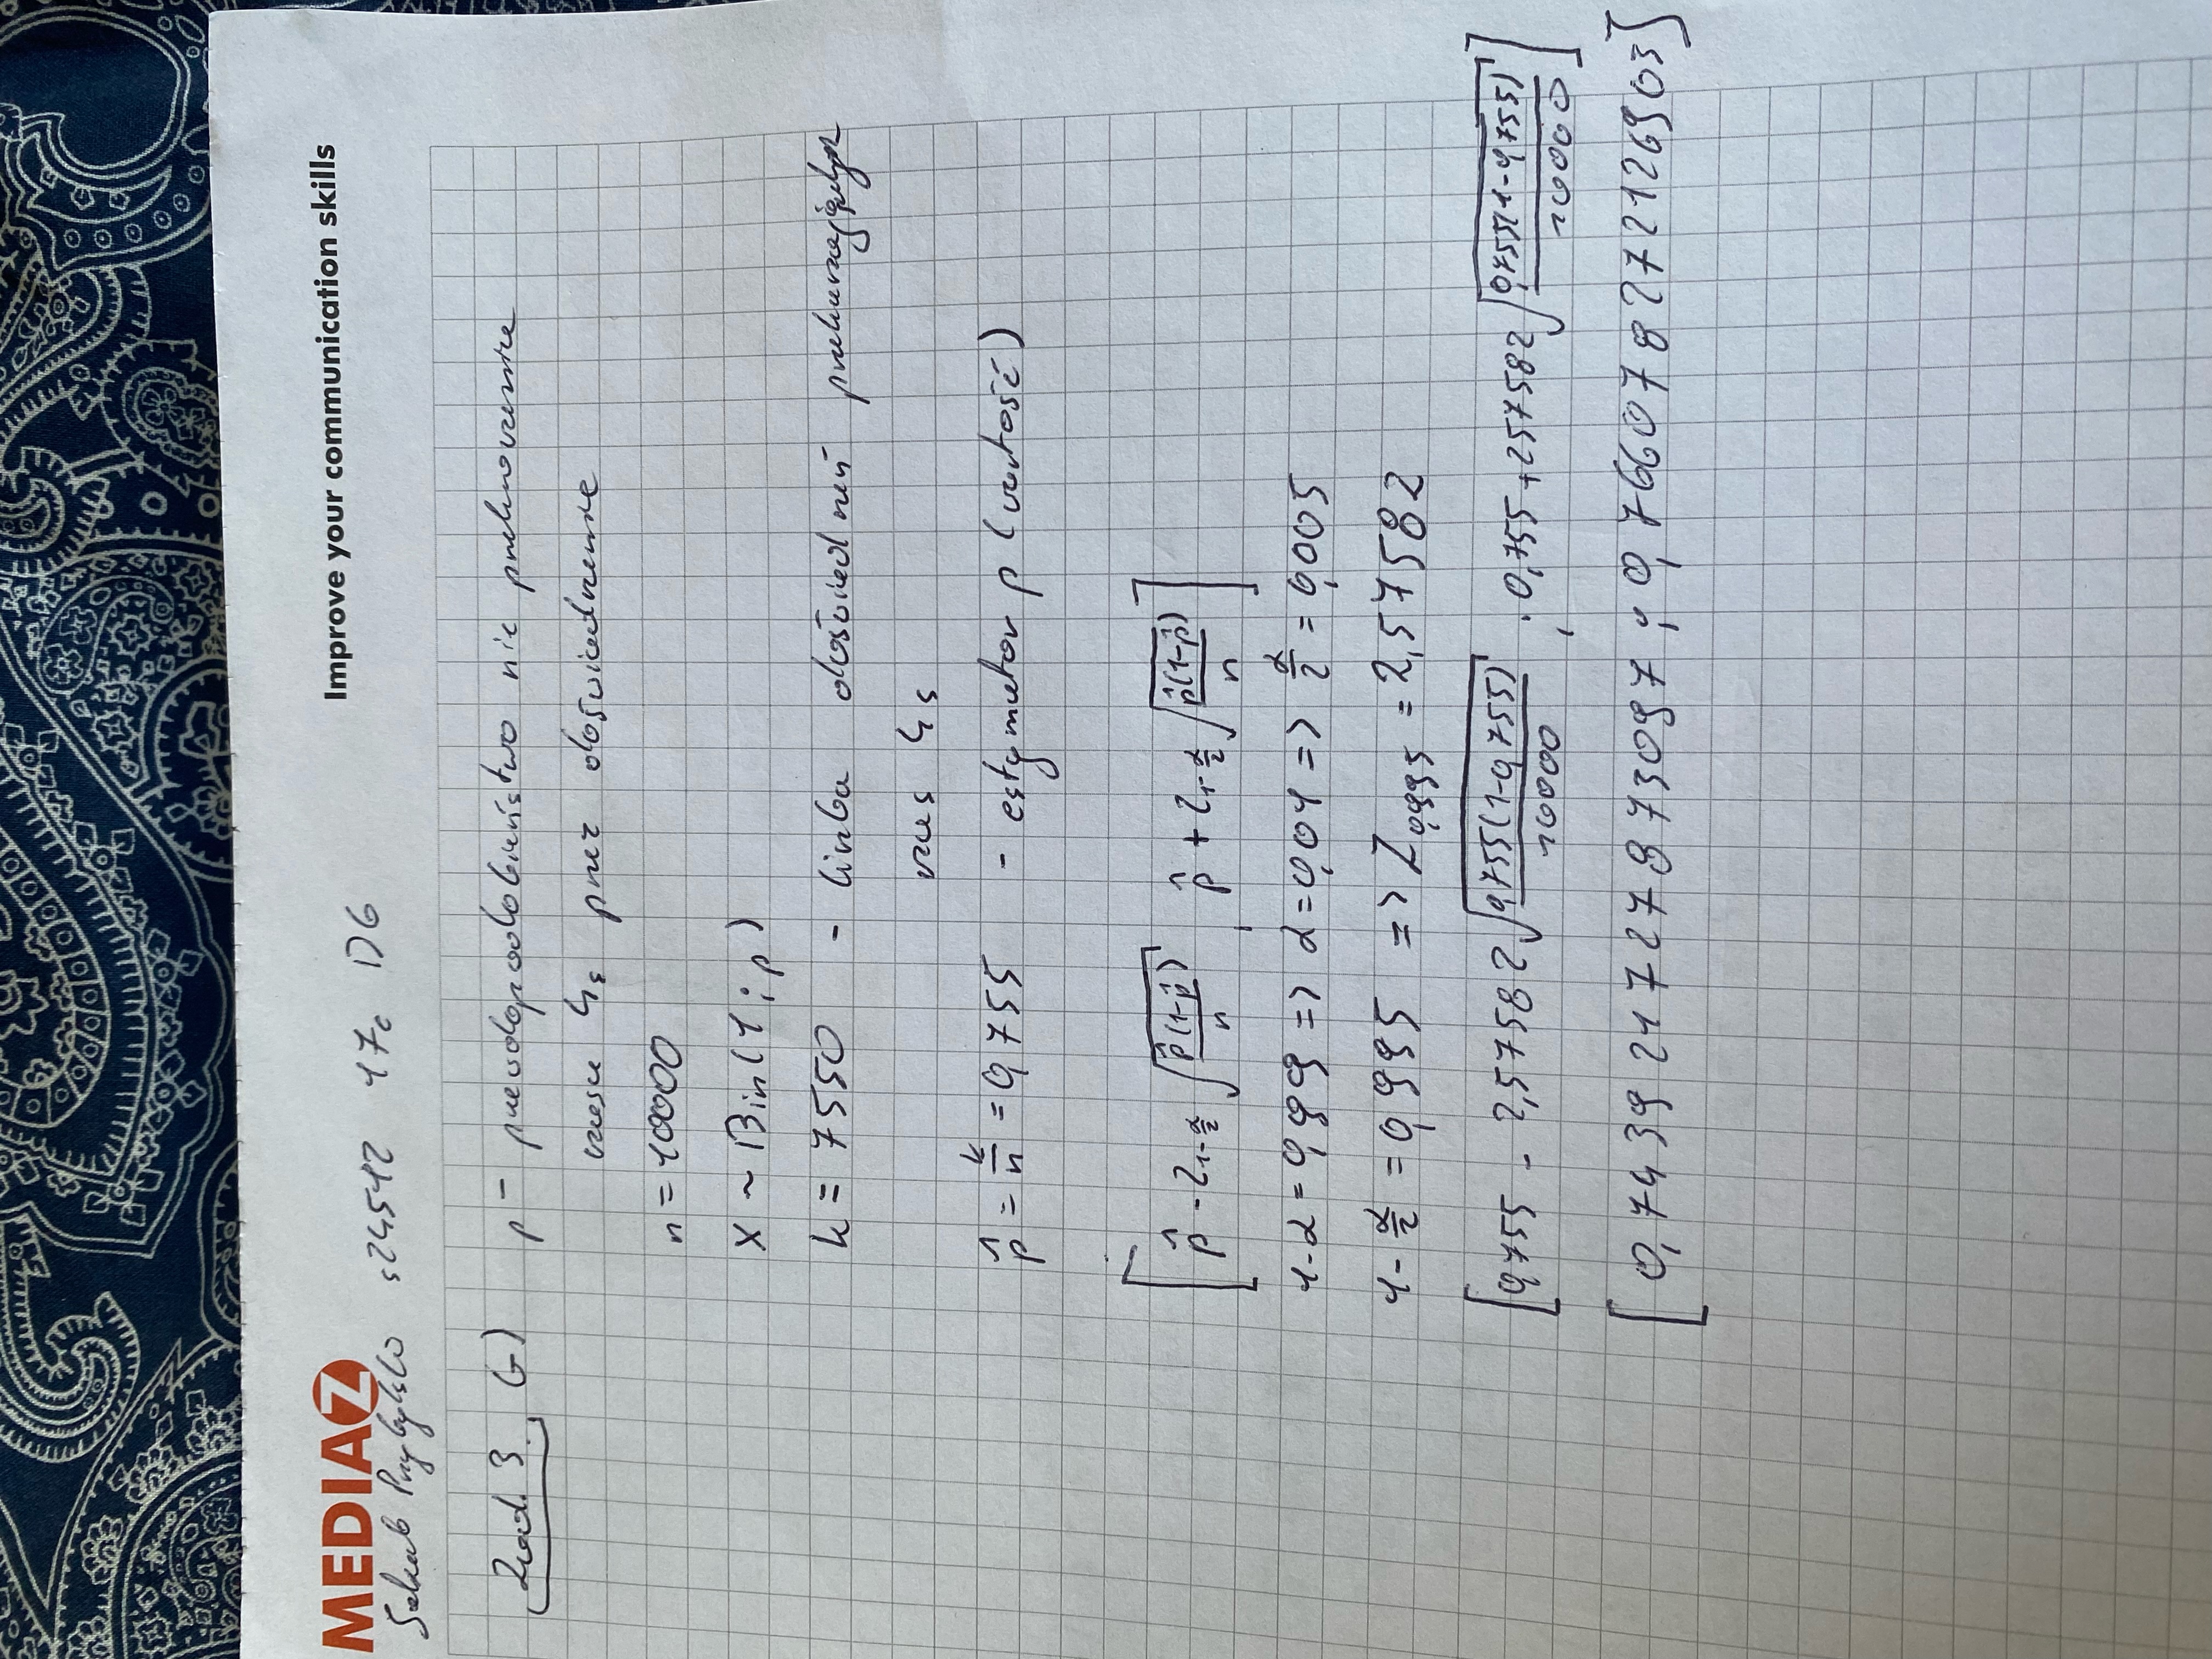 MEDIAZ
Improve your communication skills
Jakub Przybyłko s24512 17c D6
Zad. 3. G) p - prawdopodobieństwo nie przekroczenia
czasu 4s przez doświadczenie
n = 10000
X ~ Bin(1; p)
k = 7550 - liczba doświadczeń przekraczających
czas 4s
p̂ = k/n = 0,755 - estymator p (wartość)
[p̂ - z₁₋α/₂ √(p̂(1-p̂)/n) , p̂ + z₁₋α/₂ √(p̂(1-p̂)/n)]
1-α = 0,99 => α = 0,01 => α/2 = 0,005
1 - α/2 = 0,995 => Z₀,₉₉₅ = 2,57582
[0,755 - 2,57582 √(0,755(1-0,755)/10000) ; 0,755 + 2,57582 √(0,755(1-0,755)/10000)]
[0,743921727873097 ; 0,766078272126903]